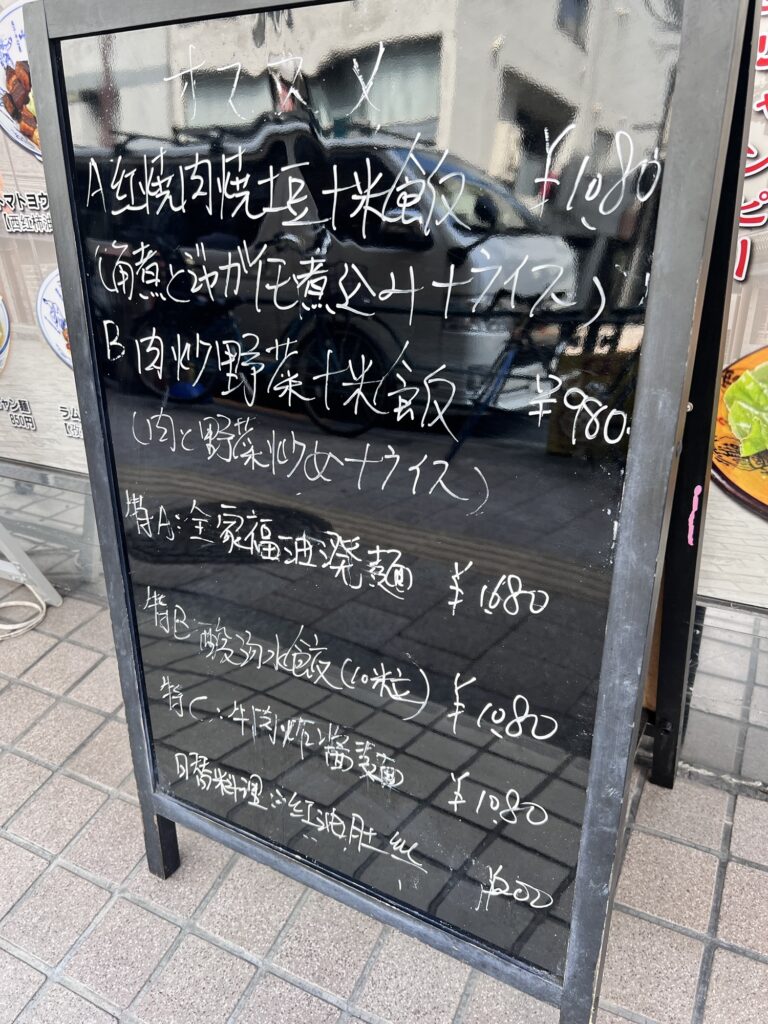 オススメ
A 紅焼肉焼土豆+米飯 ¥1080
(角煮とジャガイモ煮込み+ライス)
B 肉炒野菜+米飯 ¥980
(肉と野菜炒め+ライス)
特A:全家福油溌麺 ¥1680
特B:酸汤水餃(10粒) ¥1080
特C:牛肉炸醤麺 ¥1080
日替料理:紅油肚丝
トマトヨウ
【西紅柿油
ャン麺
850円
ラム
ャンピー